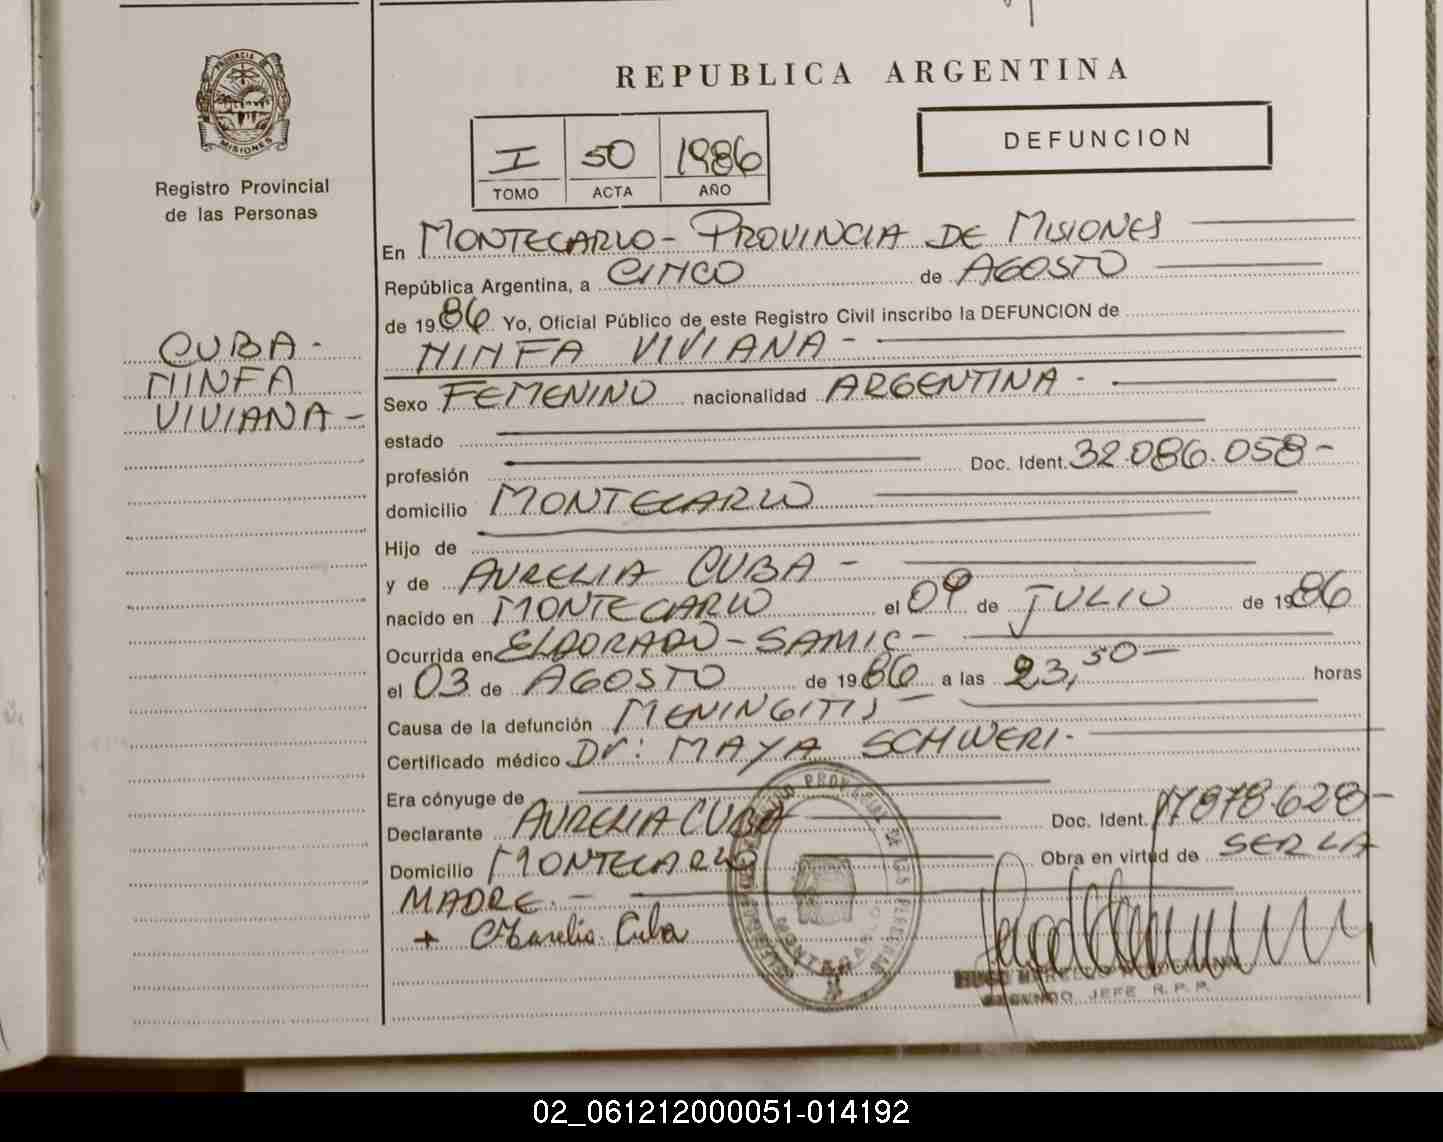 REPUBLICA ARGENTINA
PROVINCIA DE MISIONES
Registro Provincial
de las Personas
I 50 1986
TOMO ACTA AÑO
DEFUNCION
CUBA -
NINFA
VIVIANA -
En MONTECARLO - PROVINCIA DE MISIONES
República Argentina, a CINCO de AGOSTO
de 1986 Yo, Oficial Público de este Registro Civil inscribo la DEFUNCION de
NINFA VIVIANA -
Sexo FEMENINO nacionalidad ARGENTINA -
estado
profesión Doc. Ident. 32.086.058 -
domicilio MONTECARLO
Hijo de
y de AURELIA CUBA -
nacido en MONTECARLO el 09 de JULIO de 1986
Ocurrida en ELDORADO - SAMIC -
el 03 de AGOSTO de 1986 a las 23,50 - horas
Causa de la defunción MENINGITIS -
Certificado médico Dr: MAYA SCHWERI -
Era cónyuge de
Declarante AURELIA CUBA Doc. Ident. 17.878.628 -
Domicilio MONTECARLO Obra en virtud de SER LA
MADRE. -
+ Aurelia Cuba
MONTECARLO
SEGUNDO JEFE R. P. P.
02_061212000051-014192